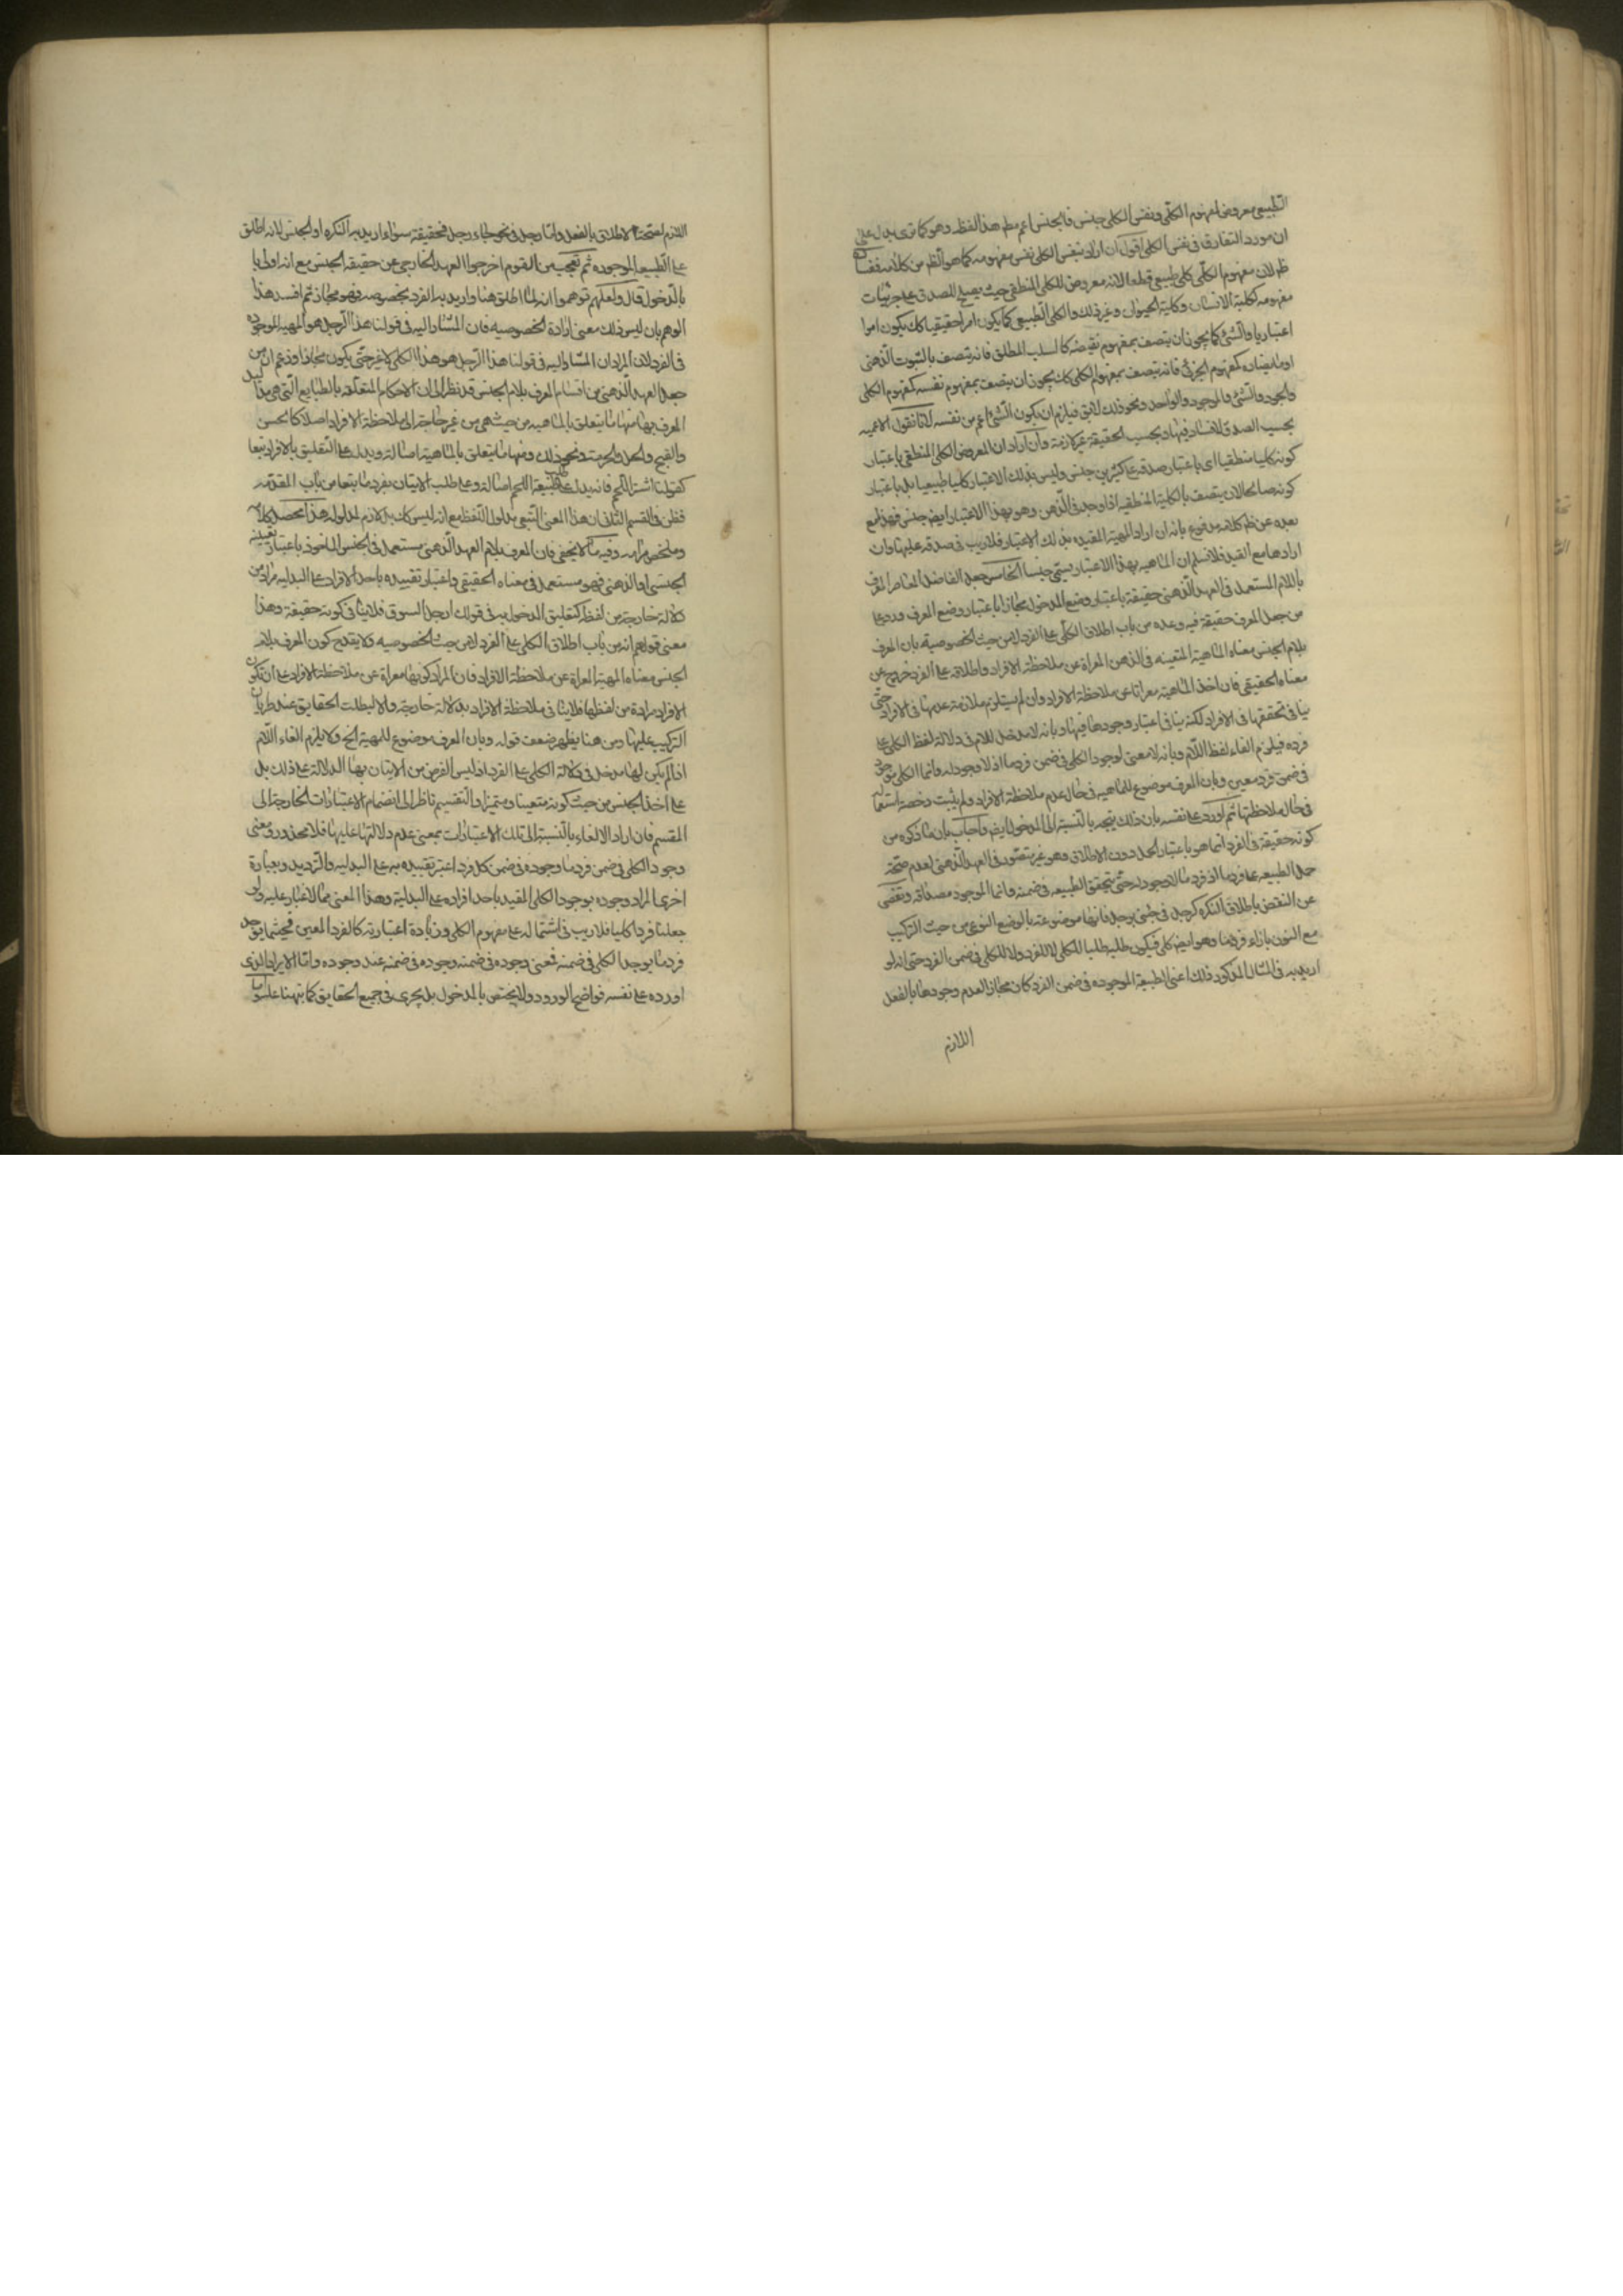 الطبيعي معروض لمفهوم الكلّي ونفس الكلي جنس فالجنس اعم مطم هذا لفظه وهو كما ترى يدل على
ان مورد التفارق في نفس الكلي اقول ان اراد بنفس الكلي نفس مفهومه كما هو الظم من كلامه ففساده
ظم لان مفهوم الكلّي كلي طبيعي قطعا لانه معروض للكلي المنطقي حيث يصلح للصدق على جزئيات
مفهومه ككلية الانسان وكلية الحيوان وغير ذلك والكلي الطبيعي كما يكون امرا حقيقيا كك يكون امرا
اعتباريا والشئ كما يجوز ان يتصف بمفهوم نقيضه كالسلب المطلق فانه يتصف بالثبوت الذهني
او مباينه كمفهوم الجزئي فانه يتصف بمفهوم الكلي كك يجوز ان يتصف بمفهوم نفسه كمفهوم الكلي
والموجود والشئ والوجود والواحد ونحو ذلك لا يق فيلزم ان يكون الشئ اعم من نفسه لانا نقول الاعميه
بحسب الصدق لا فساد فيها وبحسب الحقيقة غير لازمة وان اراد ان المعروض الكلي المنطقي باعتبار
كونه كليا منطقيا اى باعتبار صدقه على كثيرين جنس وليس بذلك الاعتبار كليا طبيعيا بل باعتبار
كونه صالحا لان يتصف بالكلية المنطقيه اذا وجد في الذهن وهو بهذا الاعتبار ايضم جنس فهذا مع
بعده عن ظم كلامه مدفوع بانه ان اراد المهية المقيده بذلك الاعتبار فلا ريب في صدقه عليها وان
ارادها مع القيد فلا نسلم ان الماهيه بهذا الاعتبار يسمى جنسا الخامس جعل الفاضل المعاصر المعرف
باللام المستعمل في العهد الذهني حقيقة باعتبار وضع المدخول مجازا باعتبار وضع المعرف ورد على
من جعل المعرف حقيقة فيه وعده من باب اطلاق الكلّي على الفرد لا من حيث الخصوصية بان المعرف
بلام الجنس معناه الماهية المتعينه في الذهن المعراة عن ملاحظة الافراد واطلاقه على الفرد خروج عن
معناه الحقيقي فان اخذ الماهية معراتا عن ملاحظة الافراد وان لم يستلزم ملازمة عدمها في الافراد حتى
ينافي تحققها في الافراد لكنه ينافي اعتبار وجودها فيها وبانه لا مدخل للام في دلالة لفظ الكلي على
فرده فيلزم الغاء لفظ اللام وبانه لا معنى لوجود الكلي في ضمن فردما اذ لا وجود له وانما الكلي موجود
في ضمن فرد معين وبان المعرف موضوع للماهيه في حال عدم ملاحظة الافراد ولم يثبت رخصة استعماله
في حال ملاحظتها ثم اورد على نفسه بان ذلك يتجه بالنسبة الى المدخول ايضم واجاب بان ما ذكروه من
كونه حقيقة في الفرد انما هو باعتبار الحمل دون الاطلاق وهو غير متصور في العهد الذهني لعدم صحّة
حمل الطبيعه على فردما اذ فردما لا وجود له حتى يتحقق الطبيعه في ضمنه وانما الموجود مصداقه وتقصى
عن النقض باطلاق النكره كرجل في جئني برجل فانها موضوعة بالوضع النوعي من حيث التركيب
مع التنوين بازاء فردما وهو ايضم كلي فيكون طلبه طلبا للكلي لا للفرد ولا للكلي في ضمن الفرد حتى انه لو
اريد به في المثال المذكور ذلك اعنى الطبيعة الموجوده في ضمن الفرد كان مجازا لعدم وجودها بالفعل
اللازم
اللازم لصحة الاطلاق بالفعل وامّا رجل في نحو جاء رجل فحقيقة سواء اريد به النكره او الجنس لانه اطلق
على الطبيعة الموجوده ثم تعجب من القوم اخرجوا العهد الخارجي عن حقيقه الجنس مع انه اولى با
بالدخول قال ولعلهم توهموا انه لما اطلق هنا واريد به الفرد بخصوصه فهو مجاز ثم افسد هذا
الوهم بان ليس ذلك معنى ارادة الخصوصيه فان المشار اليه في قولنا هذا الرجل هو المهية الموجوده
في الفرد لان المراد ان المشار اليه في قولنا هذا الرجل هو هذا الكلي لا غير حتى يكون مجازا وزعم ان من
جعل العهد الذهني من اقسام المعرف بلام الجنس قد نظر الى ان الاحكام المتعلقه بالطبايع التي هي مدلول
المعرف بها منها ما يتعلق بالماهيه من حيث هي من غير حاجة الى ملاحظة الافراد اصلا كالحسن
والقبح والحل والحرمة ونحو ذلك ومنها ما يتعلق بالماهية اصالة ويدل على التعليق بالافراد تبعا
كقولنا اشتر اللحم فانه يدل على طلب طبيعة اللحم اصالة وعلى طلب الاتيان بفرد ما تبعا من باب المقدّمه
فظن في القسم الثاني ان هذا المعنى التبعي مدلول اللفظ مع انه ليس كك بل لازم لمدلوله هذا محصل كلامه
وملخص مرامه وفيه ما لا يخفى فان المعرف بلام العهد الذهني مستعمل في الجنس الماخوذ باعتبار تعينه
الجنسي او الذهني فهو مستعمل في معناه الحقيقي واعتبار تقييده باحد الافراد على البدليه مراد من
دلالة خارجة من لفظه كتعليق الدخول به في قولك ادخل السوق فلا ينافي كونه حقيقة وهذا
معنى قولهم انه من باب اطلاق الكلي على الفرد لا من حيث الخصوصيه ولا يقدح كون المعرف بلام
الجنس معناه المهية المعراة عن ملاحظة الافراد فان المراد كونها معراة عن ملاحظة الافراد على ان تكون
الافراد مرادة من لفظها فلا ينافي ملاحظة الافراد بدلالة خارجة والا لبطلت الحقايق عند طريان
التركيب عليها ومن هنا يظهر ضعف قوله وبان المعرف موضوع للمهية الخ ولا يلزم الغاء اللام
اذا لم يكن لها مدخل في دلالة الكلي على الفرد اذ ليس الغرض من الاتيان بها الدلالة على ذلك بل
على اخذ الجنس من حيث كونه متعينا ومتميزا والتقسيم ناظر الى انضمام الاعتبارات الخارجة الى
المقسم فان اراد الالغاء بالنسبة الى تلك الاعتبارات بمعنى عدم دلالتها عليها فلا محذور ومعنى
وجود الكلي في ضمن فردما وجوده في ضمن كل فرد اعتبر تقييده به على البدليه والترديد وبعبارة
اخرى المراد وجوده بوجود الكلي المقيد باحد افراده على البدلية وهذا المعنى مما لا غبار عليه وان
جعلنا فردا كليا فلا ريب في اشتماله على مفهوم الكلي وزيادة اعتباريته كالفرد المعين فحيثما يوجد
فردما يوجد الكلي في ضمنه فمعنى وجوده في ضمنه وجوده في ضمنه عند وجوده وامّا الايراد الذى
اورده على نفسه فواضح الورود ولا يختص بالمدخول بل يجرى في جميع الحقايق كما نبهنا عليه